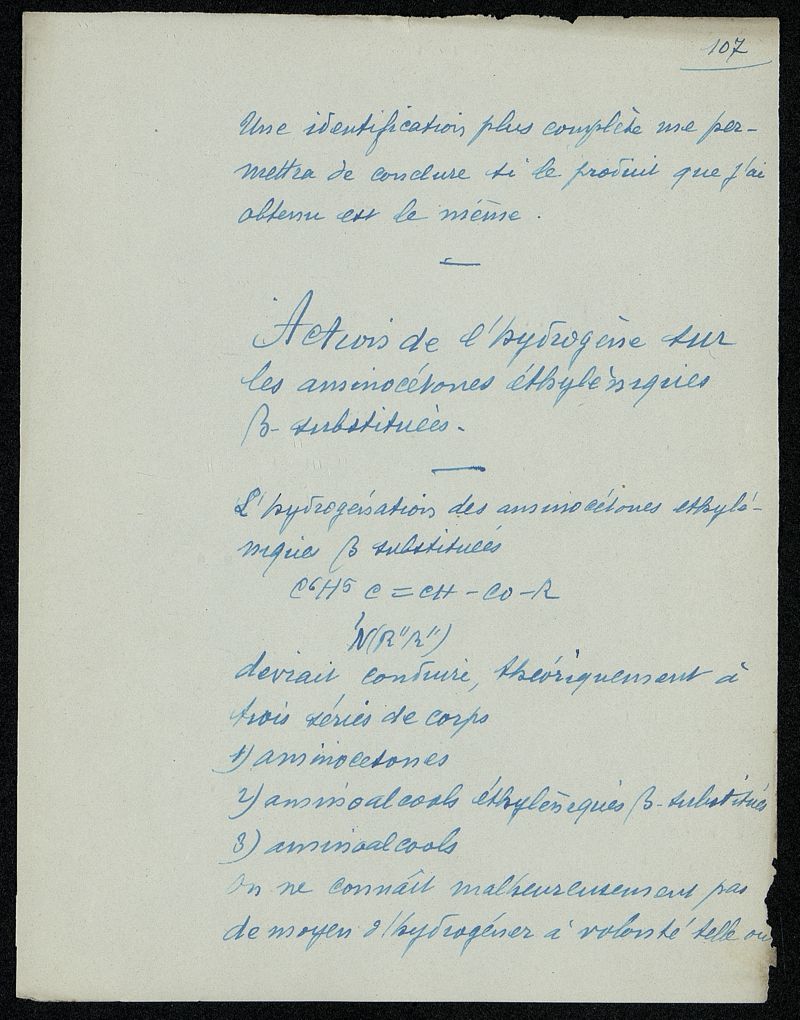 107
Une identification plus complète me per-
mettra de conclure si le produit que j'ai
obtenu est le même.
Action de l'hydrogène sur
les aminocétones éthyléniques
β-substituées.
L'hydrogénation des aminocétones ethylé-
niques β substituées
C6H5 C = CH - CO - R
N(R"R")
devrait conduire, théoriquement à
trois séries de corps
1) aminocetones
2) aminoalcools éthyléniques β-substitués
3) aminoalcools
On ne connaît malheureusement pas
de moyen d'hydrogéner à volonté telle ou